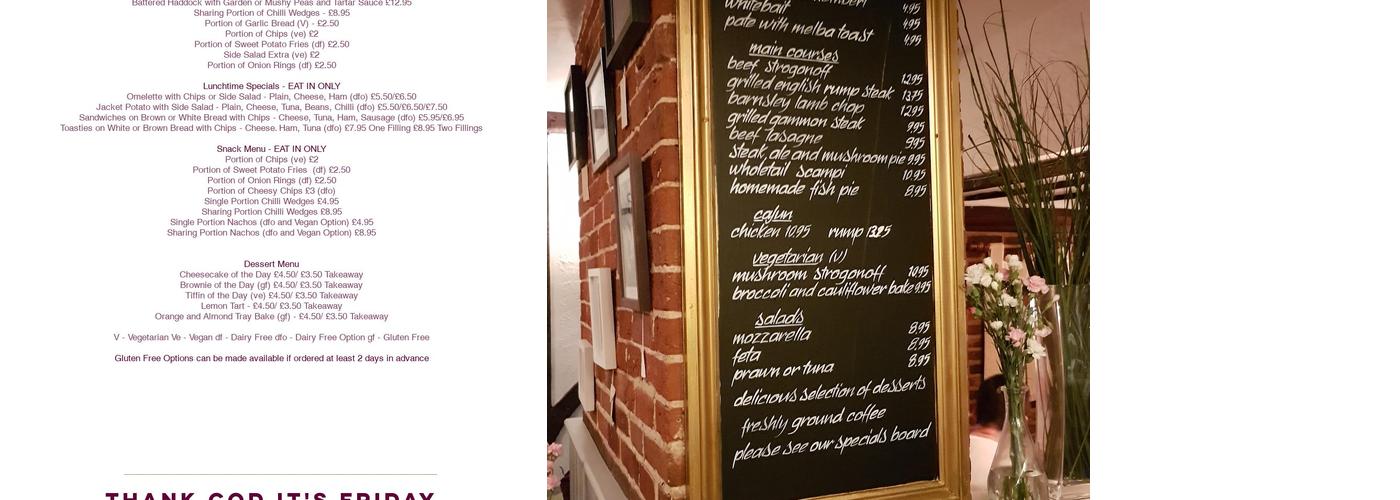 Battered Haddock with Garden or Mushy Peas and Tartar Sauce £12.95
Sharing Portion of Chilli Wedges - £8.95
Portion of Garlic Bread (V) - £2.50
Portion of Chips (ve) £2
Portion of Sweet Potato Fries (df) £2.50
Side Salad Extra (ve) £2
Portion of Onion Rings (df) £2.50
Lunchtime Specials - EAT IN ONLY
Omelette with Chips or Side Salad - Plain, Cheese, Ham (dfo) £5.50/£6.50
Jacket Potato with Side Salad - Plain, Cheese, Tuna, Beans, Chilli (dfo) £5.50/£6.50/£7.50
Sandwiches on Brown or White Bread with Chips - Cheese, Tuna, Ham, Sausage (dfo) £5.95/£6.95
Toasties on White or Brown Bread with Chips - Cheese. Ham, Tuna (dfo) £7.95 One Filling £8.95 Two Fillings
Snack Menu - EAT IN ONLY
Portion of Chips (ve) £2
Portion of Sweet Potato Fries (df) £2.50
Portion of Onion Rings (df) £2.50
Portion of Cheesy Chips £3 (dfo)
Single Portion Chilli Wedges £4.95
Sharing Portion Chilli Wedges £8.95
Single Portion Nachos (dfo and Vegan Option) £4.95
Sharing Portion Nachos (dfo and Vegan Option) £8.95
Dessert Menu
Cheesecake of the Day £4.50/ £3.50 Takeaway
Brownie of the Day (gf) £4.50/ £3.50 Takeaway
Tiffin of the Day (ve) £4.50/ £3.50 Takeaway
Lemon Tart - £4.50/ £3.50 Takeaway
Orange and Almond Tray Bake (gf) - £4.50/ £3.50 Takeaway
V - Vegetarian Ve - Vegan df - Dairy Free dfo - Dairy Free Option gf - Gluten Free
Gluten Free Options can be made available if ordered at least 2 days in advance
THANK GOD IT'S FRIDAY
whitebait 4.95
pate with melba toast 4.95
4.95
main courses
beef strogonoff 12.95
grilled english rump steak 13.75
barnsley lamb chop 12.95
grilled gammon steak 9.95
beef lasagne 9.95
steak, ale and mushroom pie 9.95
wholetail scampi 10.95
homemade fish pie 8.95
cajun
chicken 10.95 rump
vegetarian (v)
mushroom strogonoff 10.95
broccoli and cauliflower bake 9.95
salads
mozzarella 8.95
feta 8.95
prawn or tuna 8.95
delicious selection of desserts
freshly ground coffee
please see our specials board